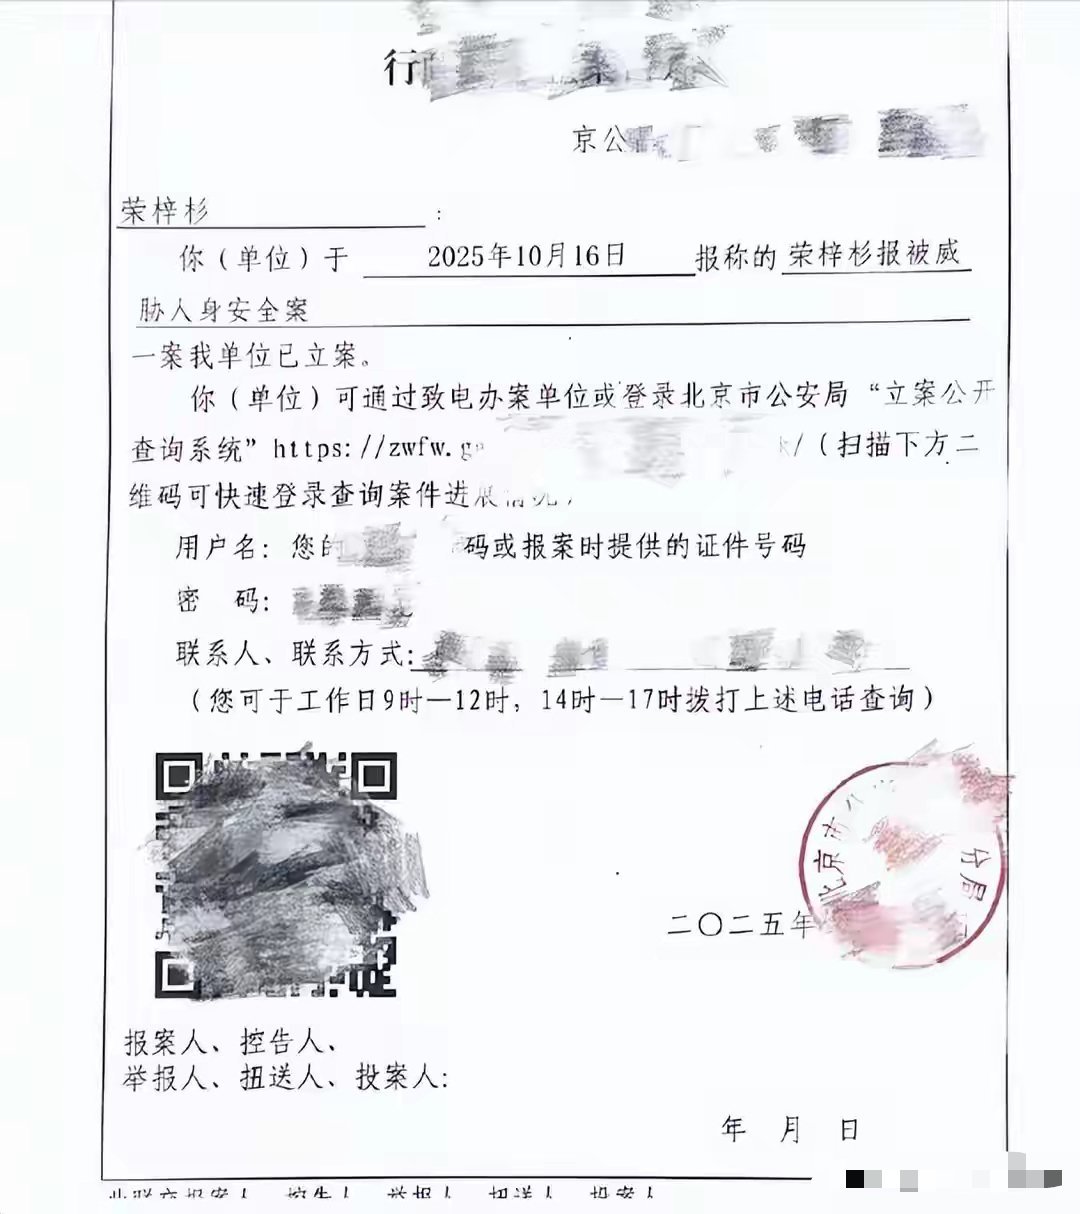 行
京公
荣梓杉:
你（单位）于 2025年10月16日 报称的 荣梓杉报被威
胁人身安全案
一案我单位已立案。
你（单位）可通过致电办案单位或登录北京市公安局“立案公开
查询系统”https://zwfw.ga /（扫描下方二
维码可快速登录查询案件进展情况）
用户名：您的 码或报案时提供的证件号码
密 码：
联系人、联系方式：
（您可于工作日9时—12时，14时—17时拨打上述电话查询）
北京市 分局
二〇二五年
报案人、控告人、
举报人、扭送人、投案人：
年 月 日
此联交报案人、控告人、举报人、扭送人、投案人